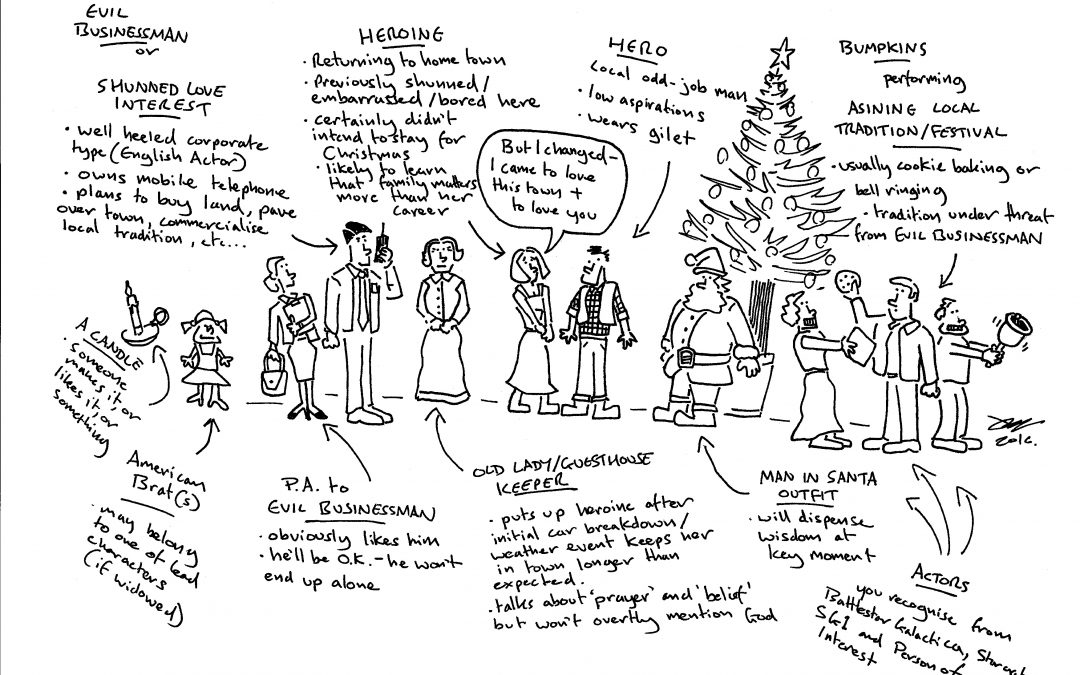 EVIL
BUSINESSMAN
or
SHUNNED LOVE
INTEREST
• well heeled corporate
type (English Actor)
• owns mobile telephone
• plans to buy land, pave
over town, commercialise
local tradition, etc...
HEROINE
• Returning to home town
• Previously shunned/
embarrussed/bored here
• certainly didn't
intend to stay for
Christmas
• likely to learn
that family matters
more than her
career
But I changed-
I came to love
this town +
to love you
HERO
Local odd-job man
• low aspirations
• wears gilet
BUMPKINS
performing
ASINING LOCAL
TRADITION/FESTIVAL
• usually cookie baking or
bell ringing
• tradition under threat
from EVIL BUSINESSMAN
A CANDLE
• someone
makes it or
likes it, or
something
American
Brat(s)
• may belong
to one of lead
characters
(if widowed)
P.A. to
EVIL BUSINESSMAN
• obviously likes him
• he'll be O.K. - he won't
end up alone
OLD LADY/GUESTHOUSE
KEEPER
• puts up heroine after
initial car breakdown/
weather event keeps her
in town longer than
expected.
• talks about 'prayer' and 'belief'
but won't overtly mention God
MAN IN SANTA
OUTFIT
• will dispense
wisdom at
key moment
ACTORS
you recognise from
Battlestar Galactica,
SG1 and Person of
Interest